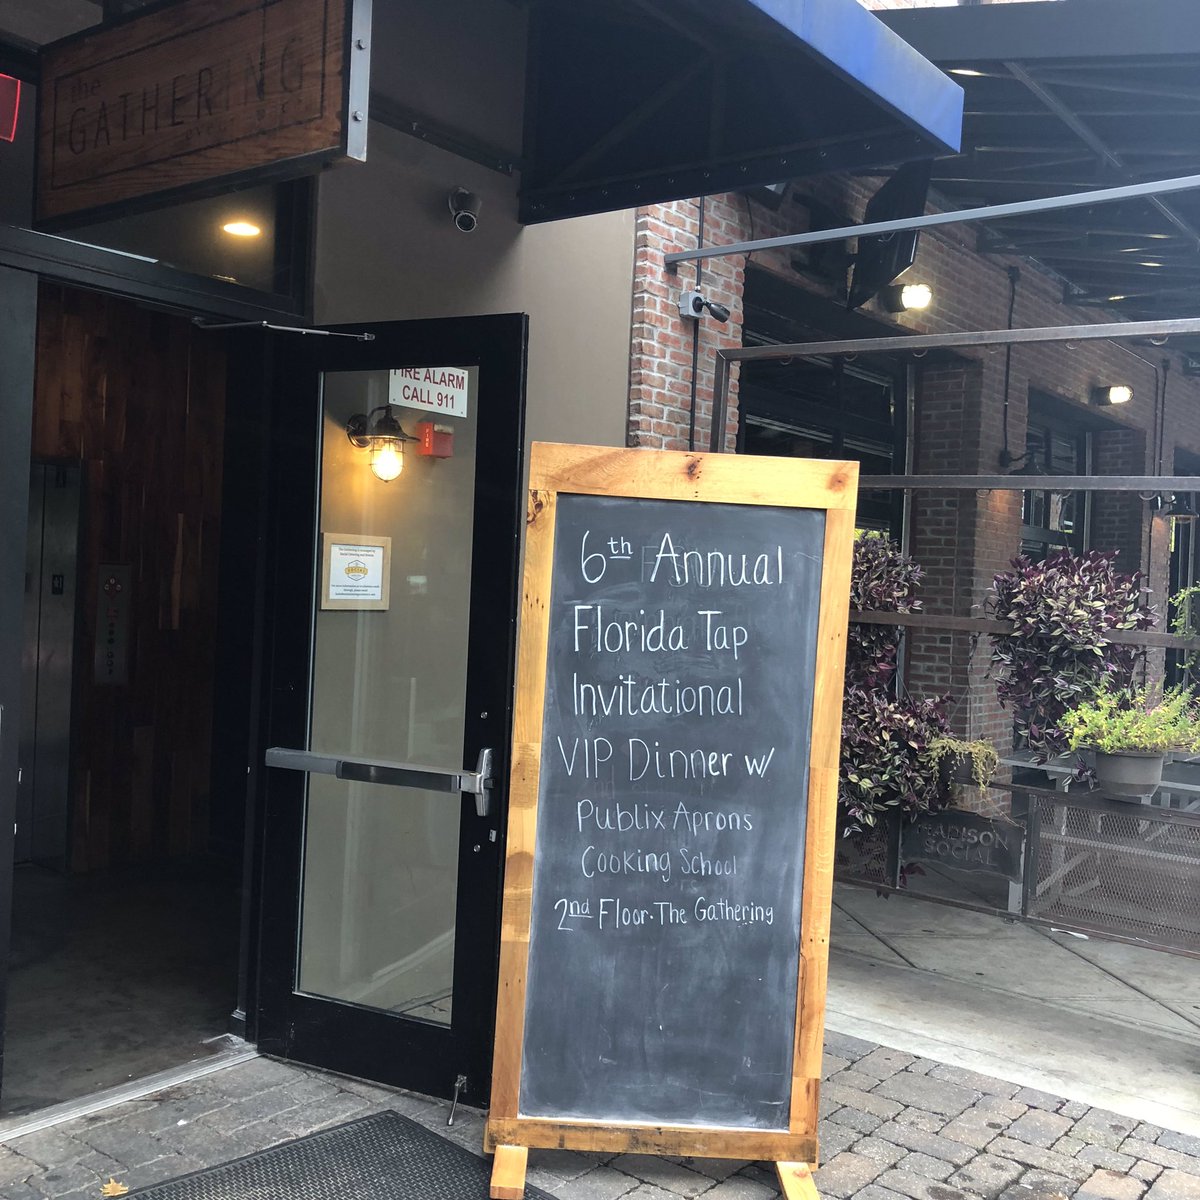 the
GATHERING
FIRE ALARM
CALL 911
FIRE
SOCIAL
6th Annual
Florida Tap
Invitational
VIP Dinner w/
Publix Aprons
Cooking School
2nd Floor·The Gathering
MADISON
SOCIAL